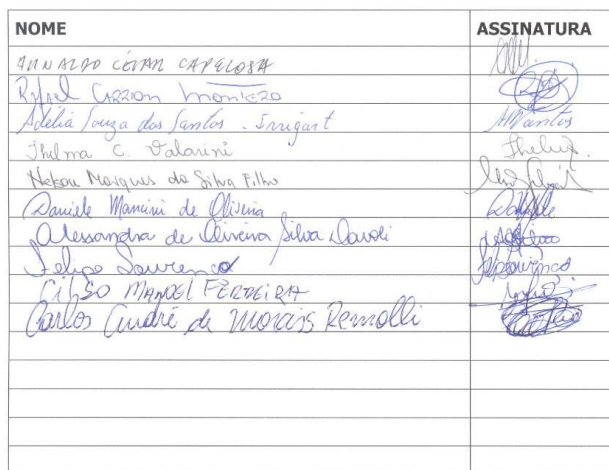 NOME ASSINATURA
CAPELOSA
Rafael Carrion Montero
Adélia Souza dos Santos - Irrigart ASantos
Thelma C. Valarini Thelma
Nelson Marques da Silva Filho
Daniele Mancini de Oliveira Daniele
Alessandra de Oliveira Silva Davoli
Felipe Lourenço FLourenço
MANOEL FERREIRA
Carlos André de Morais Remolli